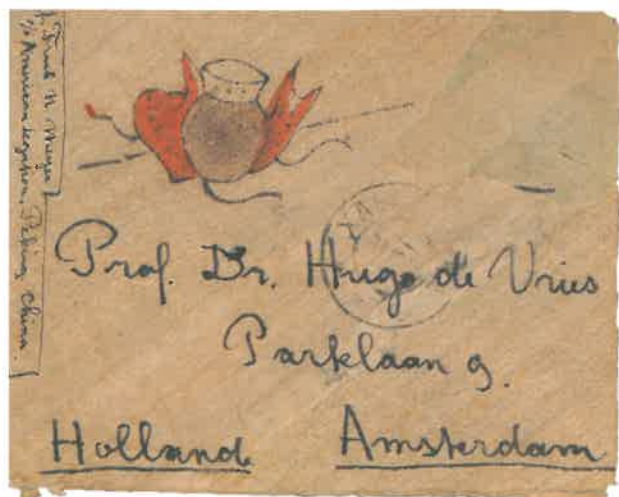 Frank N. Meyer
c/o American Legation, Peking, China.
Prof. Dr. Hugo de Vries
Parklaan 9.
Holland Amsterdam